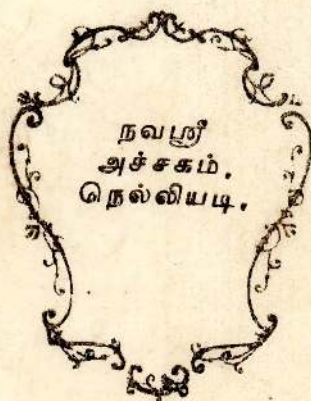 நவஸ்ரீ
அச்சகம்.
நெல்லியடி.